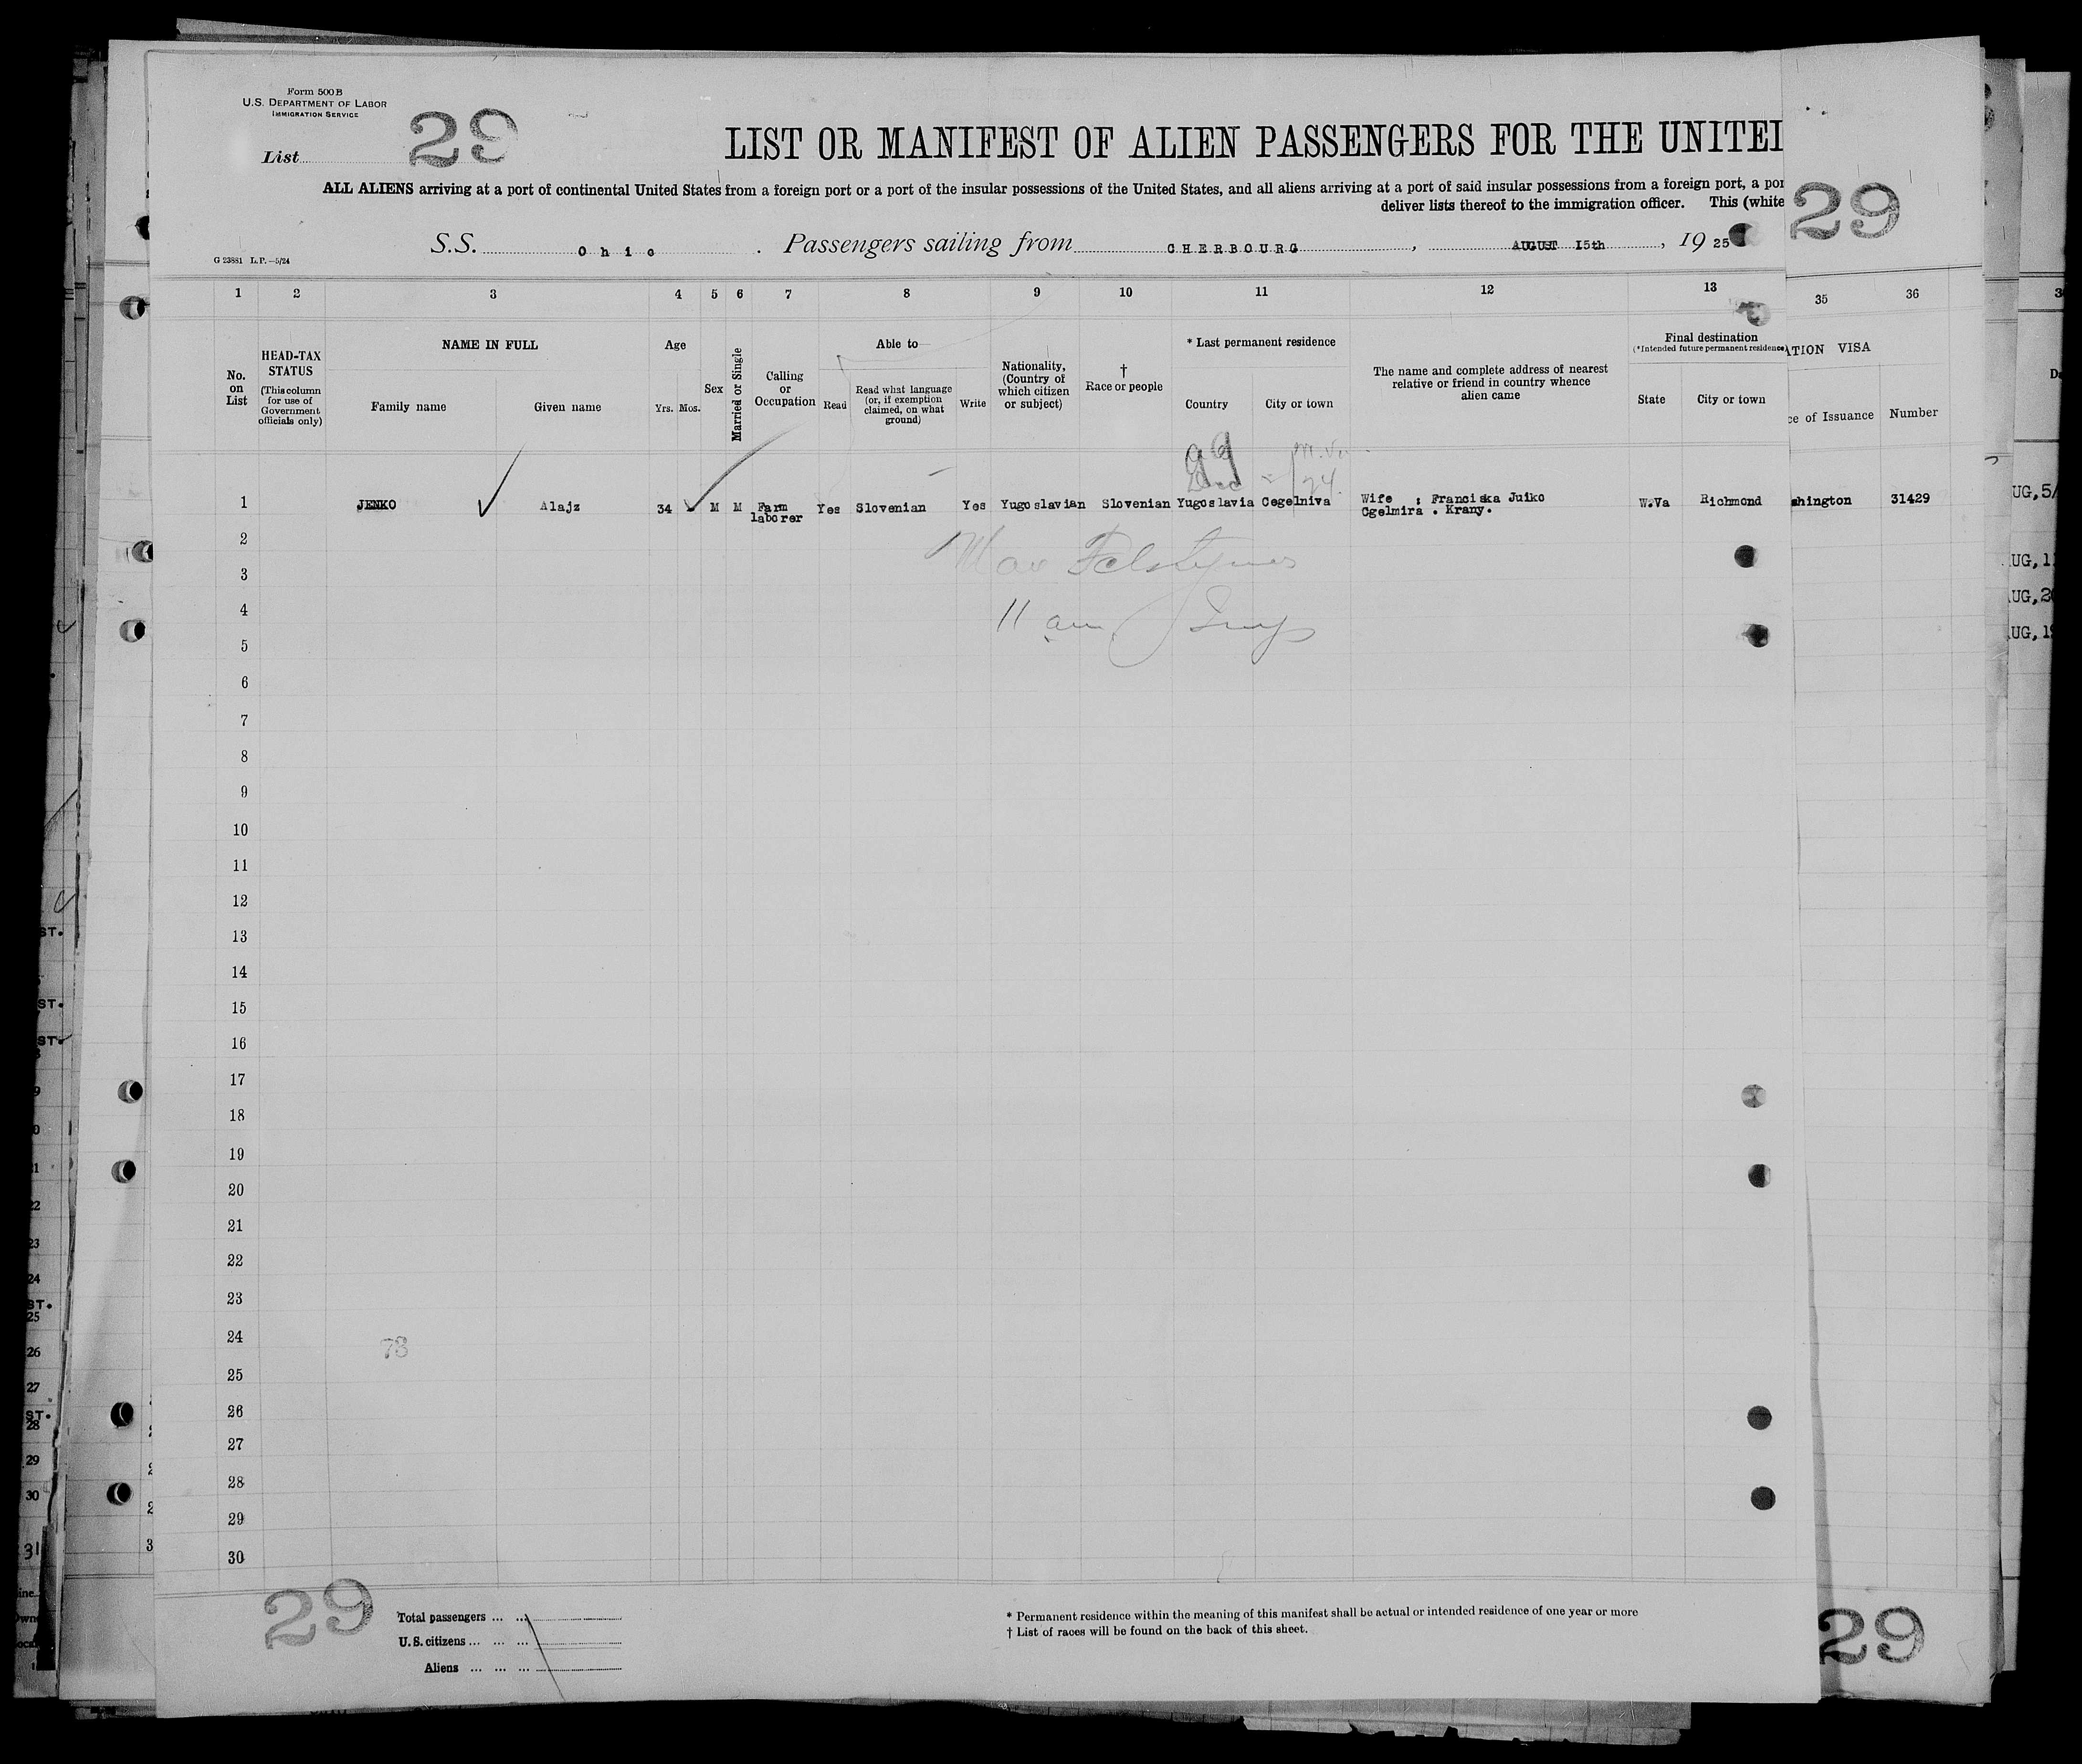 Form 500B
U.S. DEPARTMENT OF LABOR
IMMIGRATION SERVICE
List 29
LIST OR MANIFEST OF ALIEN PASSENGERS FOR THE UNITE
ALL ALIENS arriving at a port of continental United States from a foreign port or a port of the insular possessions of the United States, and all aliens arriving at a port of said insular possessions from a foreign port, a por
deliver lists thereof to the immigration officer. This (white
29
S.S. Ohio. Passengers sailing from CHERBOURG, AUGUST 15th, 1925
G 23881 L.P.—5/24
1 2 3 4 5 6 7 8 9 10 11 12 13 35 36
No. on List
HEAD-TAX STATUS
(This column for use of Government officials only)
NAME IN FULL
Family name
Given name
Age
Yrs. Mos.
Sex
Married or Single
Calling or Occupation
Able to
Read
Read what language (or, if exemption claimed, on what ground)
Write
Nationality, (Country of which citizen or subject)
† Race or people
* Last permanent residence
Country
City or town
The name and complete address of nearest relative or friend in country whence alien came
Final destination
(*Intended future permanent residence
State
City or town
ATION VISA
ce of Issuance
Number
1 JENKO Alajz 34 M M Farm laborer Yes Slovenian Yes Yugoslavian Slovenian Yugoslavia Cegelniva Wife : Franciska Juiko W.Va Richmond shington 31429
Cgelmira . Krany.
2
3
4
11 am
5
6
7
8
9
10
11
12
13
14
15
16
17
18
19
20
21
22
23
24
73
25
26
27
28
29
30
29
Total passengers ... ...
U.S. citizens ... ... ...
Aliens ... ... ...
* Permanent residence within the meaning of this manifest shall be actual or intended residence of one year or more
† List of races will be found on the back of this sheet.
29
UG,5/
UG,1
UG,2
UG,19